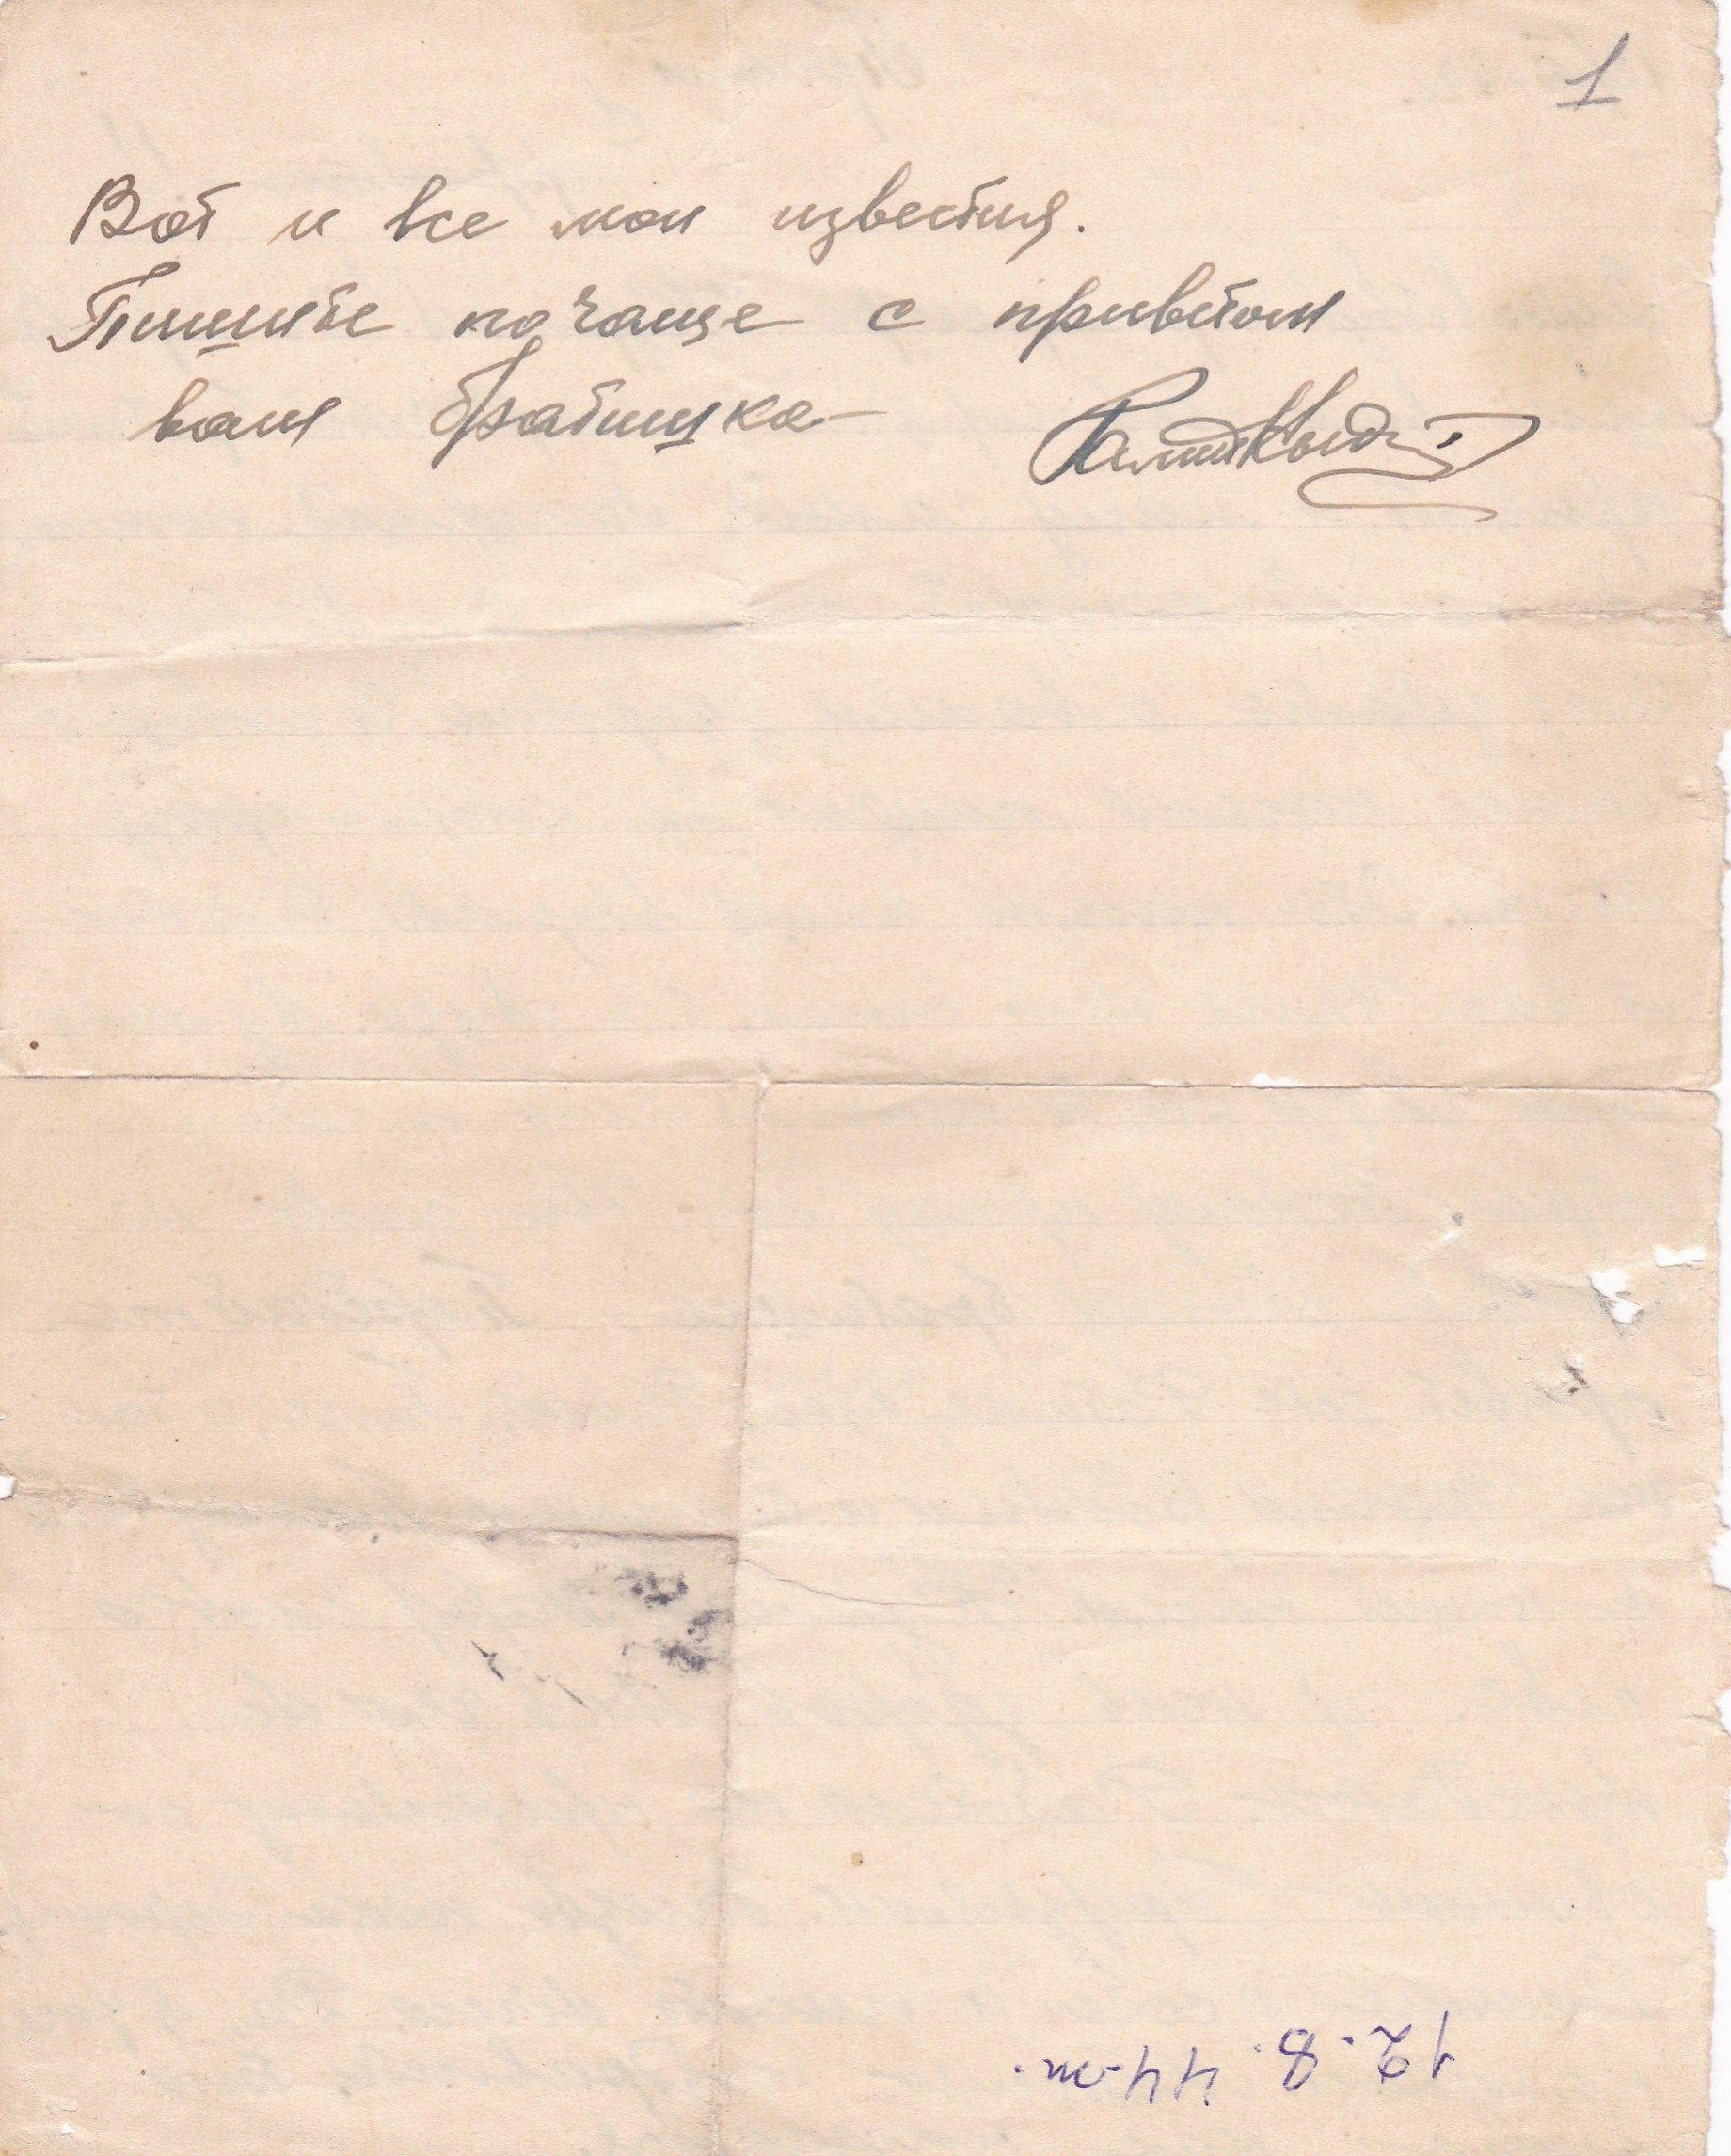 1
Вот и все мои известия.
Пишите почаще с приветом
ваш братишка
12.8.44-т.